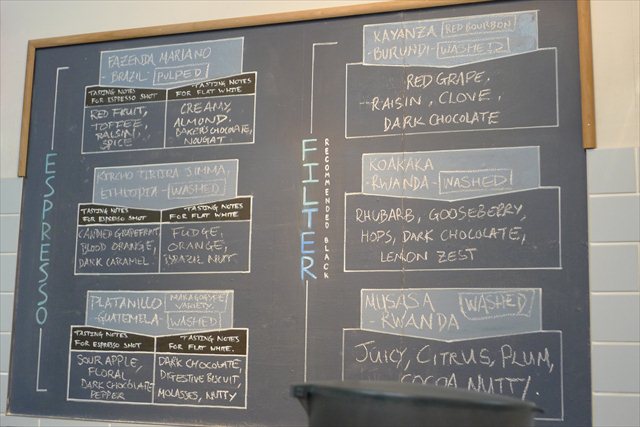 ESPRESSO
FAZENDA MARIANO
-BRAZIL- PULPED
TASTING NOTES
FOR ESPRESSO SHOT
RED FRUIT,
TOFFEE,
RAISIN,
SPICE
TASTING NOTES
FOR FLAT WHITE
CREAMY,
ALMOND,
BAKERS CHOCOLATE,
NOUGAT
JIMMA,
ETHIOPIA - WASHED
TASTING NOTES
FOR ESPRESSO SHOT
CANDIED GRAPEFRUIT,
BLOOD ORANGE,
DARK CARAMEL
TASTING NOTES
FOR FLAT WHITE
FUDGE,
ORANGE,
BRAZIL NUT
PLATANILLO
MARAGOGYPE
VARIETY
-GUATEMELA- WASHED
TASTING NOTES
FOR ESPRESSO SHOT
SOUR APPLE,
FLORAL
DARK CHOCOLATE
PEPPER
TASTING NOTES
FOR FLAT WHITE.
DARK CHOCOLATE,
DIGESTIVE BISCUIT,
MOLASSES, NUTTY
FILTER
RECOMMENDED BLACK
KAYANZA RED BOURBON
-BURUNDI- WASHED
RED GRAPE,
RAISIN, CLOVE,
DARK CHOCOLATE
KOAKAKA
-RWANDA- WASHED
RHUBARB, GOOSEBERRY,
HOPS, DARK CHOCOLATE,
LEMON ZEST
MUSASA WASHED
-RWANDA
JUICY, CITRUS, PLUM,
COCOA NUTTY.